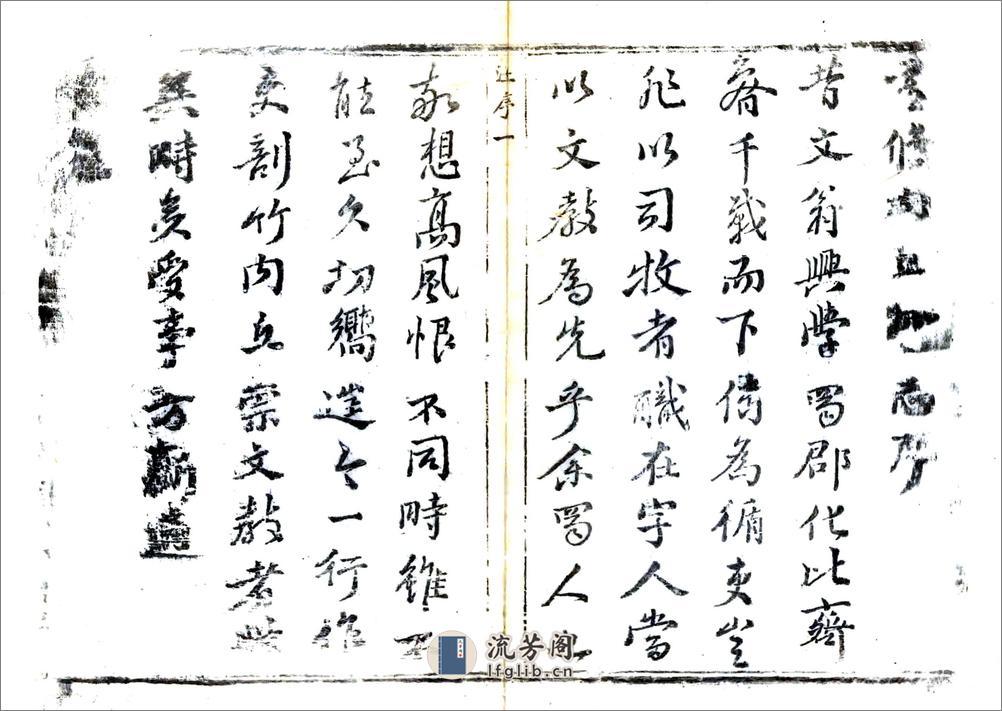 修內丘志
昔文翁興學蜀郡化比齊
魯千載而下偁為循吏豈
非以司牧者職在字人當
以文教為先乎余蜀人也
序一
想高風恨不同時雖不
能至久切嚮今一行作
吏剖竹內丘崇文教者此
其時矣受事方新
流芳阁
lfglib.cn